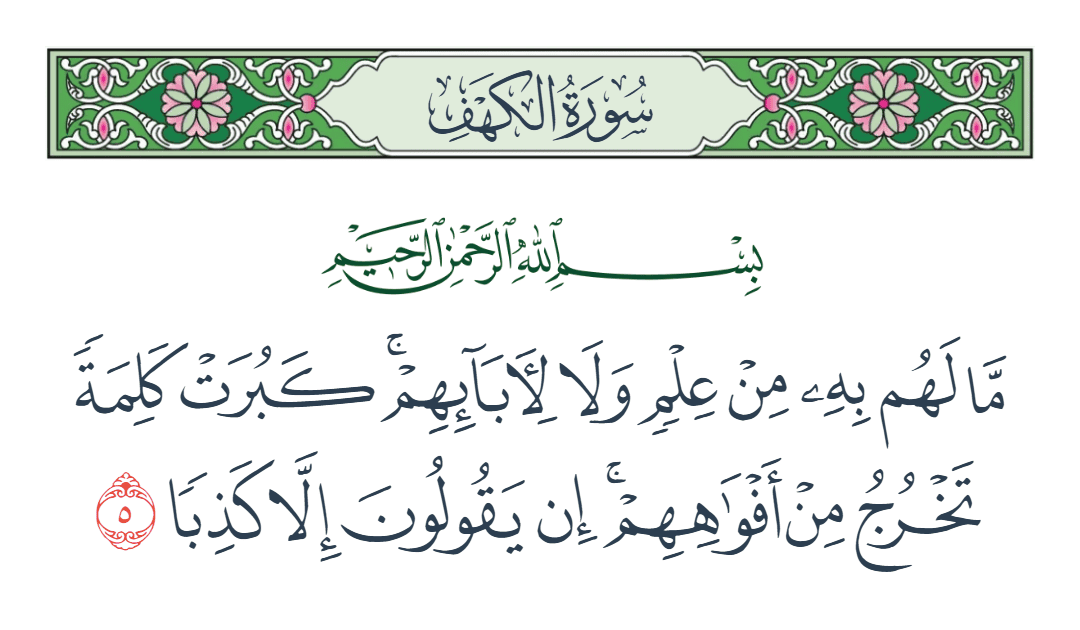 سُورَةُ الكَهۡفِ
بِسۡمِ ٱللَّهِ ٱلرَّحۡمَٰنِ ٱلرَّحِيمِ
مَّا لَهُم بِهِۦ مِنۡ عِلۡمٖ وَلَا لِأٓبَآئِهِمۡۚ كَبُرَتۡ كَلِمَةٗ
تَخۡرُجُ مِنۡ أَفۡوَٰهِهِمۡۚ إِن يَقُولُونَ إِلَّا كَذِبٗا ٥